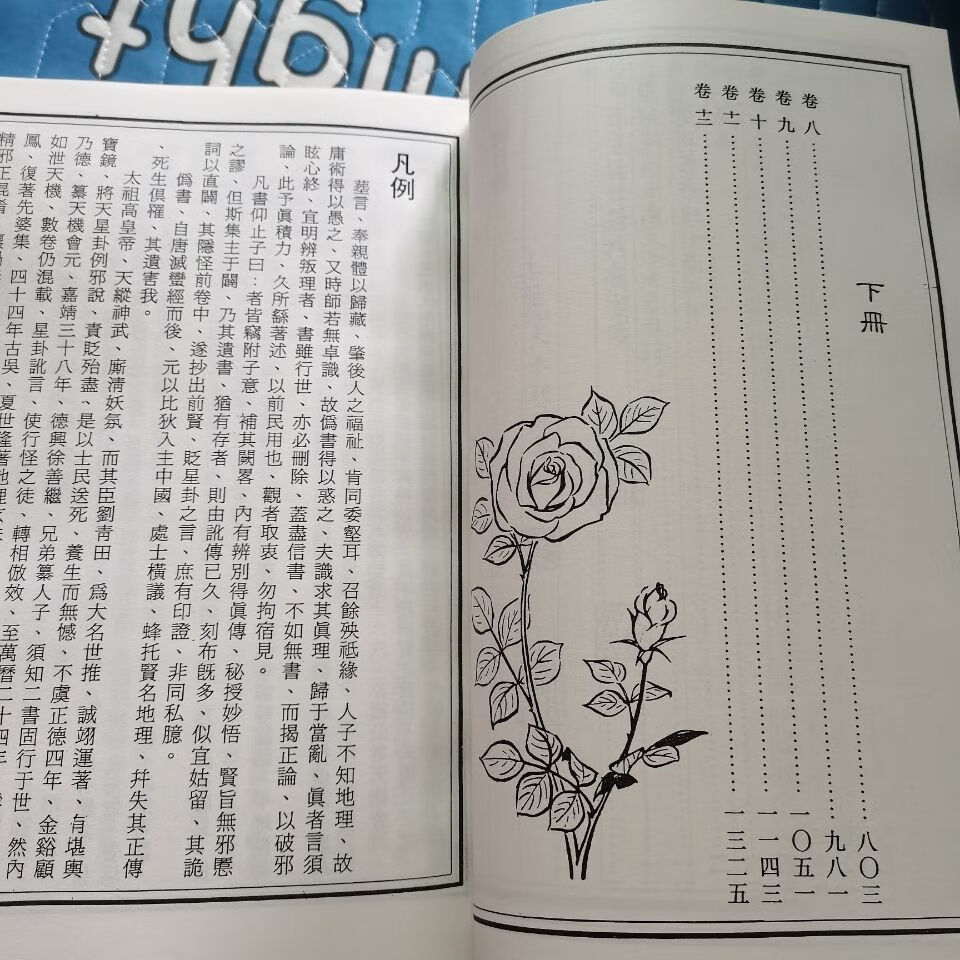 下冊
卷八……八〇三
卷九……九八一
卷十……一〇五一
卷十一……一一四三
卷十二……一三二五
凡例
葬言、奉親體以歸藏、肇後人之福祉、肯同委壑耳、召餘殃祗緣、人子不知地理、故
庸術得以愚之、又時師若無卓識、故僞書得以惑之、夫識求其眞理、歸于當亂、眞者言須
眩心終、宜明辨叛理者、書雖行世、亦必刪除、蓋盡信書、不如無書、而揭正論、以破邪
論、此予眞積力、久所繇著述、以前民用也、觀者取衷、勿拘宿見。
凡書仰止子曰：者皆竊附子意、補其闕畧、內有辨別得眞傳、秘授妙悟、賢旨無邪慝
之謬、但斯集主于闢、乃其遺書、猶有存者、則由訛傳已久、刻布旣多、似宜姑留、其詭
詞以直闢、其隱怪前卷中、遂抄出前賢、貶星卦之言、庶有印證、非同私臆。
僞書、自唐滅蠻經而後、元以比狄入主中國、處士橫議、蜂托賢名地理、幷失其正傳
、死生俱罹、其遺害我。
太祖高皇帝、天縱神武、廝淸妖氛、而其臣劉靑田、爲大名世推、誠翊運著、有堪輿
寶鏡、將天星卦例邪說、責貶殆盡、是以士民送死、養生而無憾、不虞正德四年、金谿顧
乃德、纂天機會元、嘉靖三十八年、德興徐善繼、兄弟纂人子、須知二書固行于世、然內
如泄天機、數卷仍混載、星卦訛言、使行怪之徒、轉相倣效、至萬曆二十四年
鳳、復著先婆集、四十四年古吳、夏世隆著地理
精邪正混肴
ight